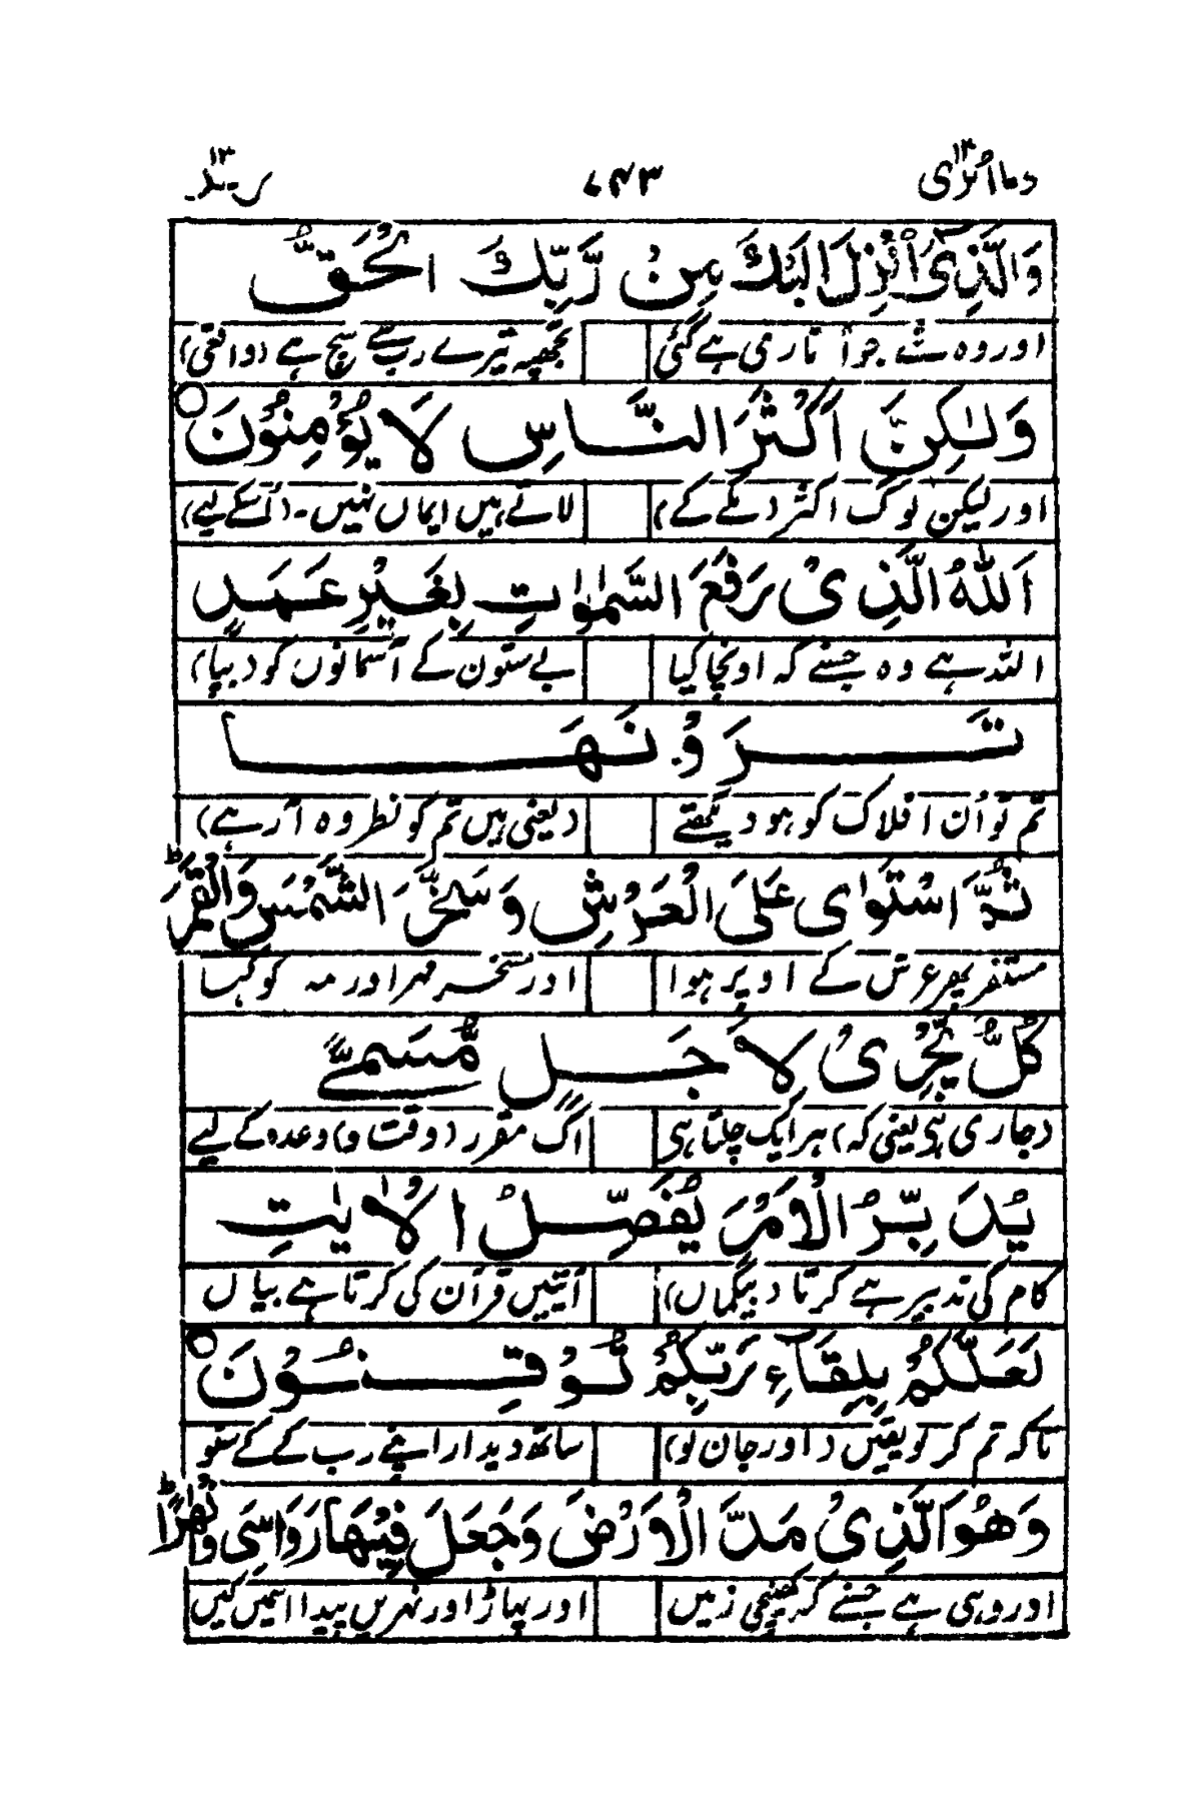 وما ابرئ ۱۳ ۷۴۳ ۱۳
وَالَّذِیْۤ اُنْزِلَ اِلَیْكَ مِنْ رَّبِّكَ الْحَقُّ
اور وہ شے جو اُتاری ہے گئی تجھپہ تیرے رب سے سچ ہے (واقعی)
وَلٰكِنَّ اَكْثَرَ النَّاسِ لَا یُؤْمِنُوْنَ
اور لیکن لوگ اکثر (مکے کے) لاتے ہیں ایماں نہیں۔ (اُسکے لیے)
اَللّٰهُ الَّذِیْ رَفَعَ السَّمٰوٰتِ بِغَیْرِ عَمَدٍ
اللہ ہے وہ جسنے کہ اونچا کیا بے ستون کے آسمانوں کو (بپا)
تَرَوْنَهَا
تم تو اُن افلاک کو ہو دیکھتے (یعنی ہیں تم کو نظر وہ آرہے)
ثُمَّ اسْتَوٰى عَلَى الْعَرْشِ وَسَخَّرَ الشَّمْسَ وَالْقَمَرَؕ
مستقر پھر عرش کے اوپر ہوا اور مسخر مہر اور مہ کو کیا
كُلٌّ یَّجْرِیْ لِاَجَلٍ مُّسَمًّی
(جاری ہی یعنی کہ) ہر ایک چلتا ہی اک مقرر (وقت و) وعدہ کے لیے
یُدَبِّرُ الْاَمْرَ یُفَصِّلُ الْاٰیٰتِ
کام کی تدبیر ہے کرتا (بیگماں) آیتیں قرآن کی کرتا ہے بیاں
لَعَلَّكُمْ بِلِقَآءِ رَبِّكُمْ تُوْقِنُوْنَ
تاکہ تم کر لو یقیں (اور جان لو) ساتھ دیدار اپنے رب کے کے
وَهُوَ الَّذِیْ مَدَّ الْاَرْضَ وَجَعَلَ فِیْهَا رَوَاسِیَ وَاَنْهٰرًاؕ
اور وہی ہے جسنے کہ کھینچی زمیں اور پہاڑ اور نہریں پیدا اسمیں کیں